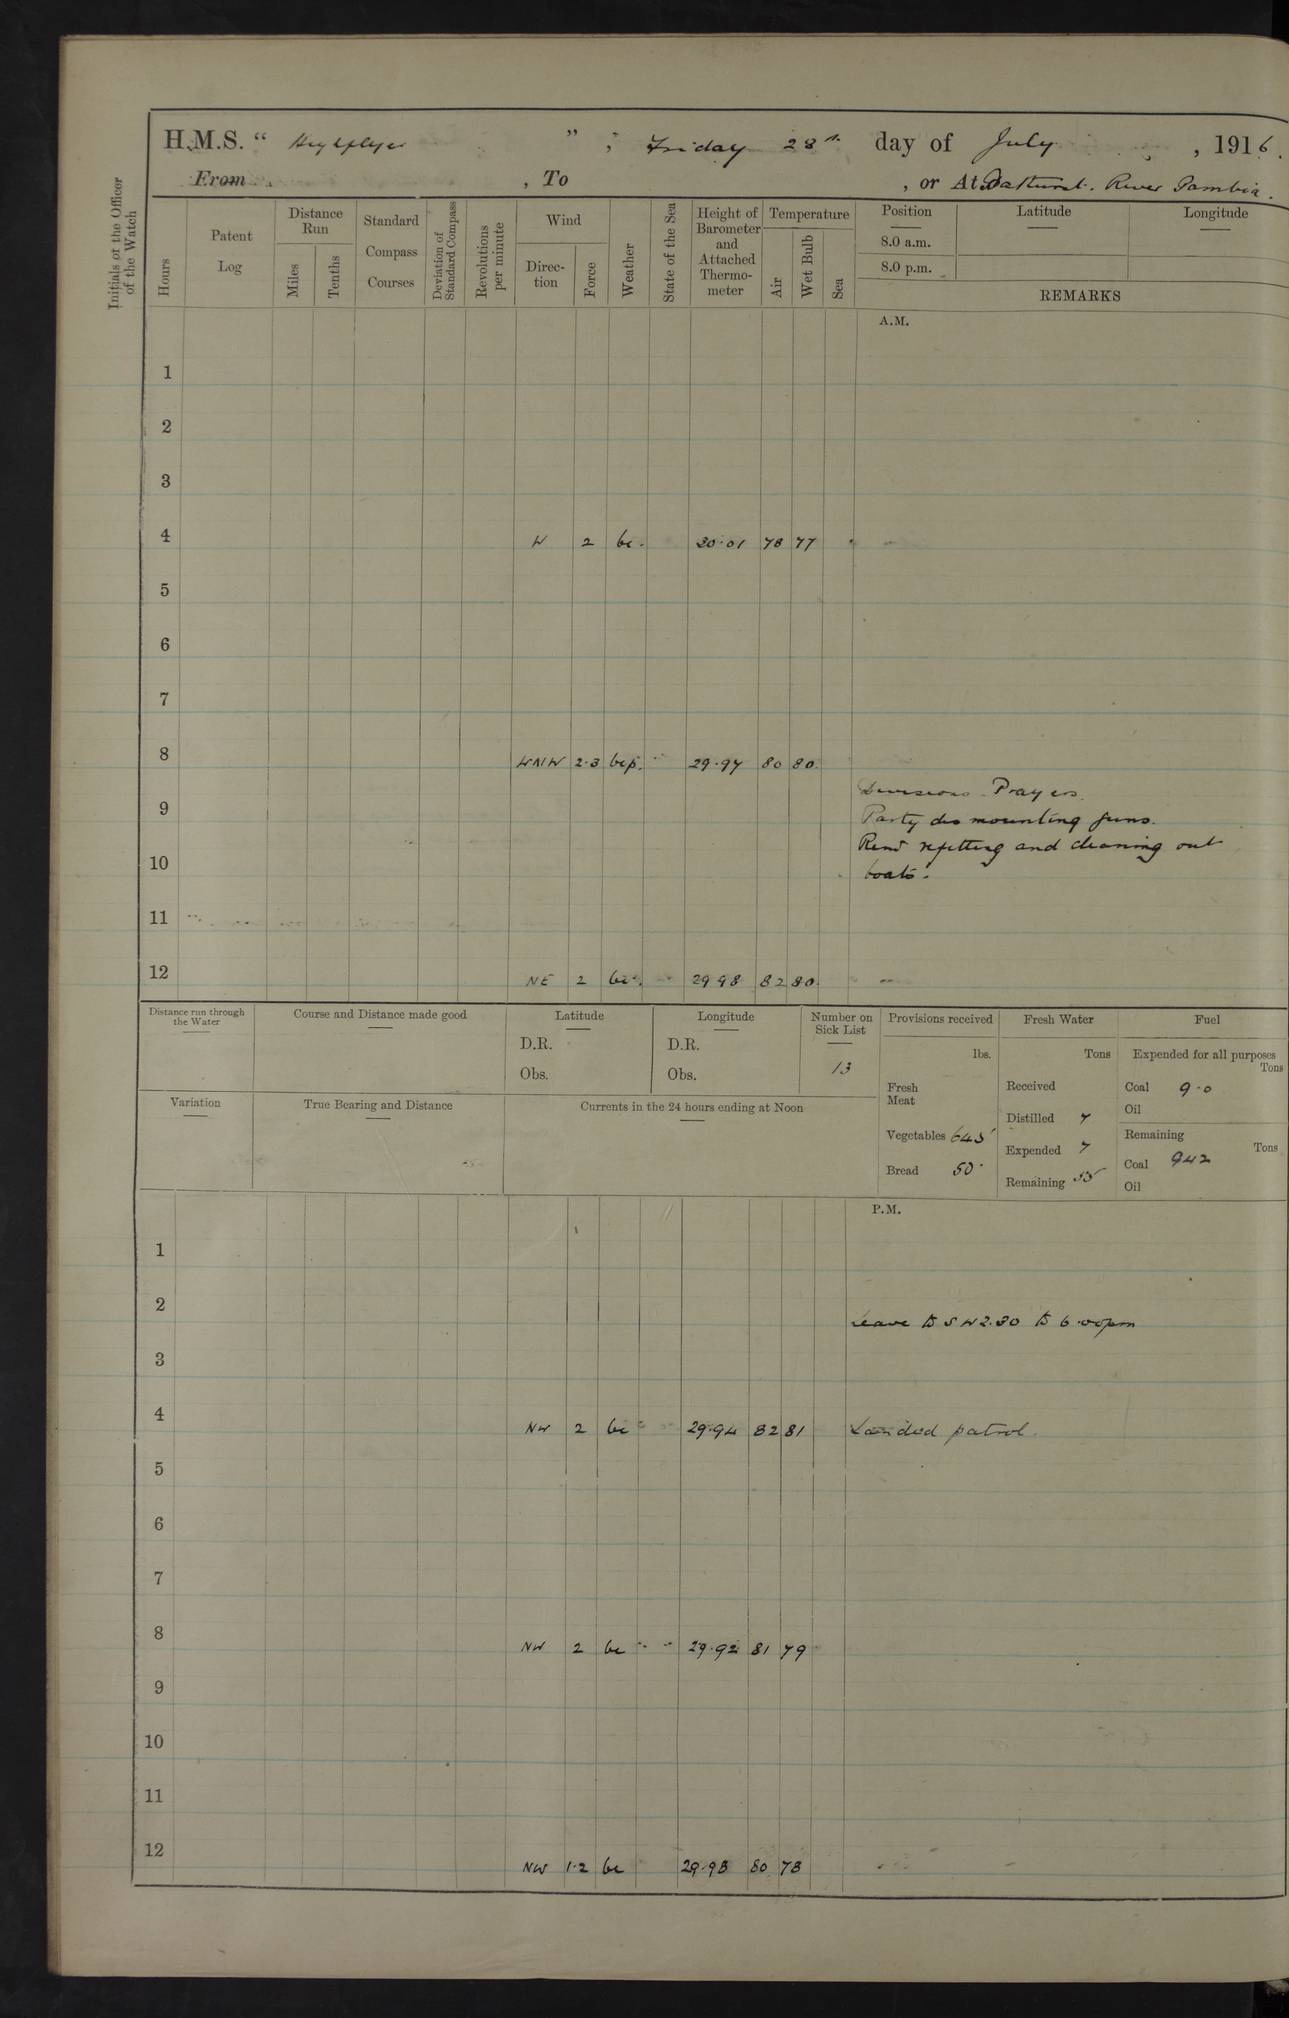 H.M.S. " Highflyer " , Friday 28th day of July , 1916.
From , To , or At Bathurst. River Gambia.
Initials of the Officer of the Watch
Hours
Patent Log
Distance Run
Miles
Tenths
Standard Compass Courses
Deviation of Standard Compass
Revolutions per minute
Wind
Direction
Force
Weather
State of the Sea
Height of Barometer and Attached Thermometer
Temperature
Air
Wet Bulb
Sea
Position
8.0 a.m.
8.0 p.m.
Latitude
Longitude
REMARKS
A.M.
1
2
3
4 W 2 bc. 30.01 78 77
5
6
7
8 WNW 2.3 bcp. 29.97 80 80
Divisions. Prayers.
9 Party dismounting guns.
Remr refitting and cleaning out
10 boats.
11
12 NE 2 bc. 29 98 82 80
Distance run through the Water
Course and Distance made good
Latitude
D.R.
Obs.
Longitude
D.R.
Obs.
Number on Sick List
13
Provisions received
lbs.
Fresh Meat
Vegetables 645
Bread 50
Fresh Water
Tons
Received
Distilled 7
Expended 7
Remaining 55
Fuel
Expended for all purposes
Tons
Coal 9.0
Oil
Remaining
Tons
Coal 942
Oil
Variation
True Bearing and Distance
Currents in the 24 hours ending at Noon
P.M.
1
2 Leave to S W 2.30 to 6.00pm
3
4 NW 2 bc 29.94 82 81 Landed patrol.
5
6
7
8 NW 2 bc 29.92 81 79
9
10
11
12 NW 1.2 bc 29.93 80 78